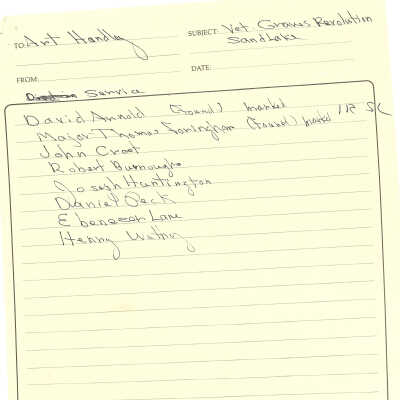 TO: Art Handley
SUBJECT: Vet Graves Revolution
Sandlake
DATE:
FROM:
Service
David Arnold (Found) marked
Major Thomas Frothingham (Found) marked
John Crost
Robert Burroughs
Joseph Huntington
Daniel Peck
Ebenezer Lane
Henry